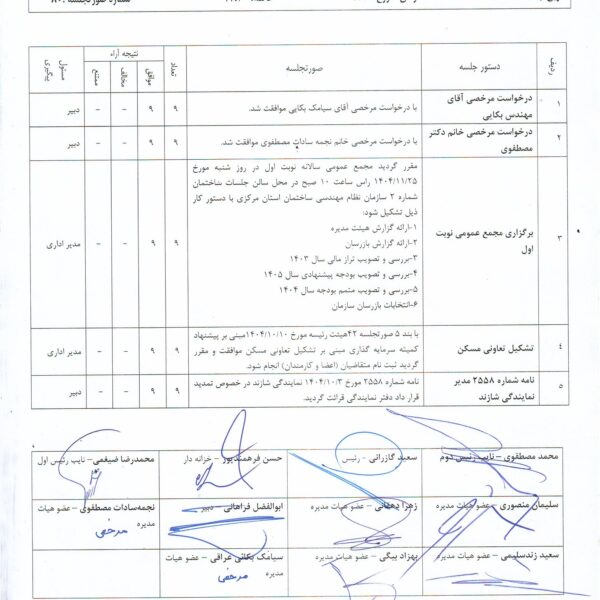 ردیف
دستور جلسه
صورتجلسه
تعداد
نتیجه آراء
موافق
مخالف
ممتنع
مسئول پیگیری
۱
درخواست مرخصی آقای
مهندس بکایی
با درخواست مرخصی آقای سیامک بکایی موافقت شد.
۹
۹
-
-
دبیر
۲
درخواست مرخصی خانم دکتر
مصطفوی
با درخواست مرخصی خانم نجمه سادات مصطفوی موافقت شد.
۹
۹
-
-
دبیر
۳
برگزاری مجمع عمومی نوبت
اول
مقرر گردید مجمع عمومی سالانه نوبت اول در روز شنبه مورخ
۱۴۰۴/۱۱/۲۵ راس ساعت ۱۰ صبح در محل سالن جلسات ساختمان
شماره ۲ سازمان نظام مهندسی ساختمان استان مرکزی با دستور کار
ذیل تشکیل شود:
۱-ارائه گزارش هیئت مدیره
۲-ارائه گزارش بازرسان
۳-بررسی و تصویب تراز مالی سال ۱۴۰۳
۴-بررسی و تصویب بودجه پیشنهادی سال ۱۴۰۵
۵-بررسی و تصویب متمم بودجه سال ۱۴۰۴
۶-انتخابات بازرسان سازمان
۹
۹
-
-
مدیر اداری
۴
تشکیل تعاونی مسکن
با بند ۵ صورتجلسه ۴۲هیئت رئیسه مورخ ۱۴۰۴/۱۰/۱۰مبنی بر پیشنهاد
کمیته سرمایه گذاری مبنی بر تشکیل تعاونی مسکن موافقت و مقرر
گردید ثبت نام متقاضیان (اعضا و کارمندان) انجام شود.
۹
۹
-
-
مدیر اداری
۵
نامه شماره ۲۵۵۸ مدیر
نمایندگی شازند
نامه شماره ۲۵۵۸ مورخ ۱۴۰۴/۱۰/۳ نمایندگی شازند در خصوص تمدید
قرار داد دفتر نمایندگی قرائت گردید.
۹
۹
-
-
دبیر
محمد مصطفوی – نایب رئیس دوم
سعید گازرانی – رئیس
حسن فرهمندپور – خزانه دار
محمدرضا ضیغمی – نایب رئیس اول
سلیمان منصوری – عضو هیات مدیره
زهرا دهقانی – عضو هیات مدیره
ابوالفضل فراهانی – دبیر
نجمه‌سادات مصطفوی – عضو هیات
مدیره
مرخصی
سعید زندسلیمی – عضو هیات مدیره
بهزاد بیگی – عضو هیات مدیره
سیامک بکائی عراقی – عضو هیات
مدیره
مرخصی